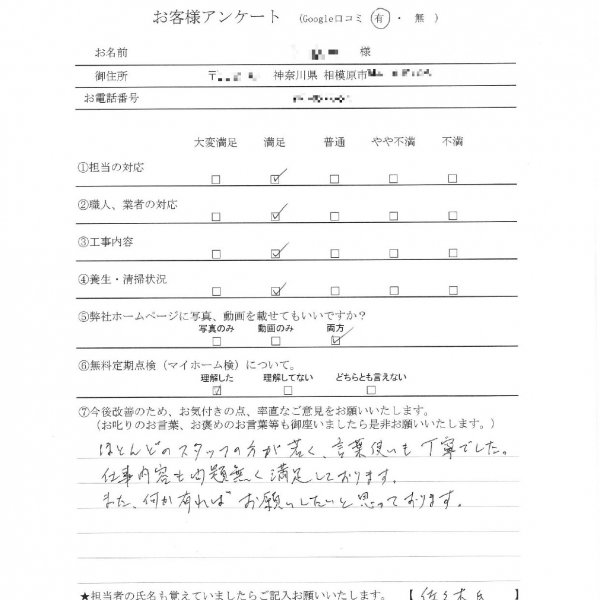 お客様アンケート (Google口コミ 有 ・ 無 )
お名前 様
御住所 〒 神奈川県 相模原市
お電話番号
大変満足 満足 普通 やや不満 不満
①担当の対応
②職人、業者の対応
③工事内容
④養生・清掃状況
⑤弊社ホームページに写真、動画を載せてもいいですか?
写真のみ 動画のみ 両方
⑥無料定期点検（マイホーム検）について。
理解した 理解してない どちらとも言えない
⑦今後改善のため、お気付きの点、率直なご意見をお願いいたします。
（お叱りのお言葉、お褒めのお言葉等も御座いましたら是非お願いします。）
ほとんどのスタッフの方が若く、言葉使いも丁寧でした。
仕事内容も問題無く満足しております。
また、何か有ればお願いしたいと思っております。
★担当者の氏名も覚えていましたらご記入お願いいたします。 【 佐々木氏 】